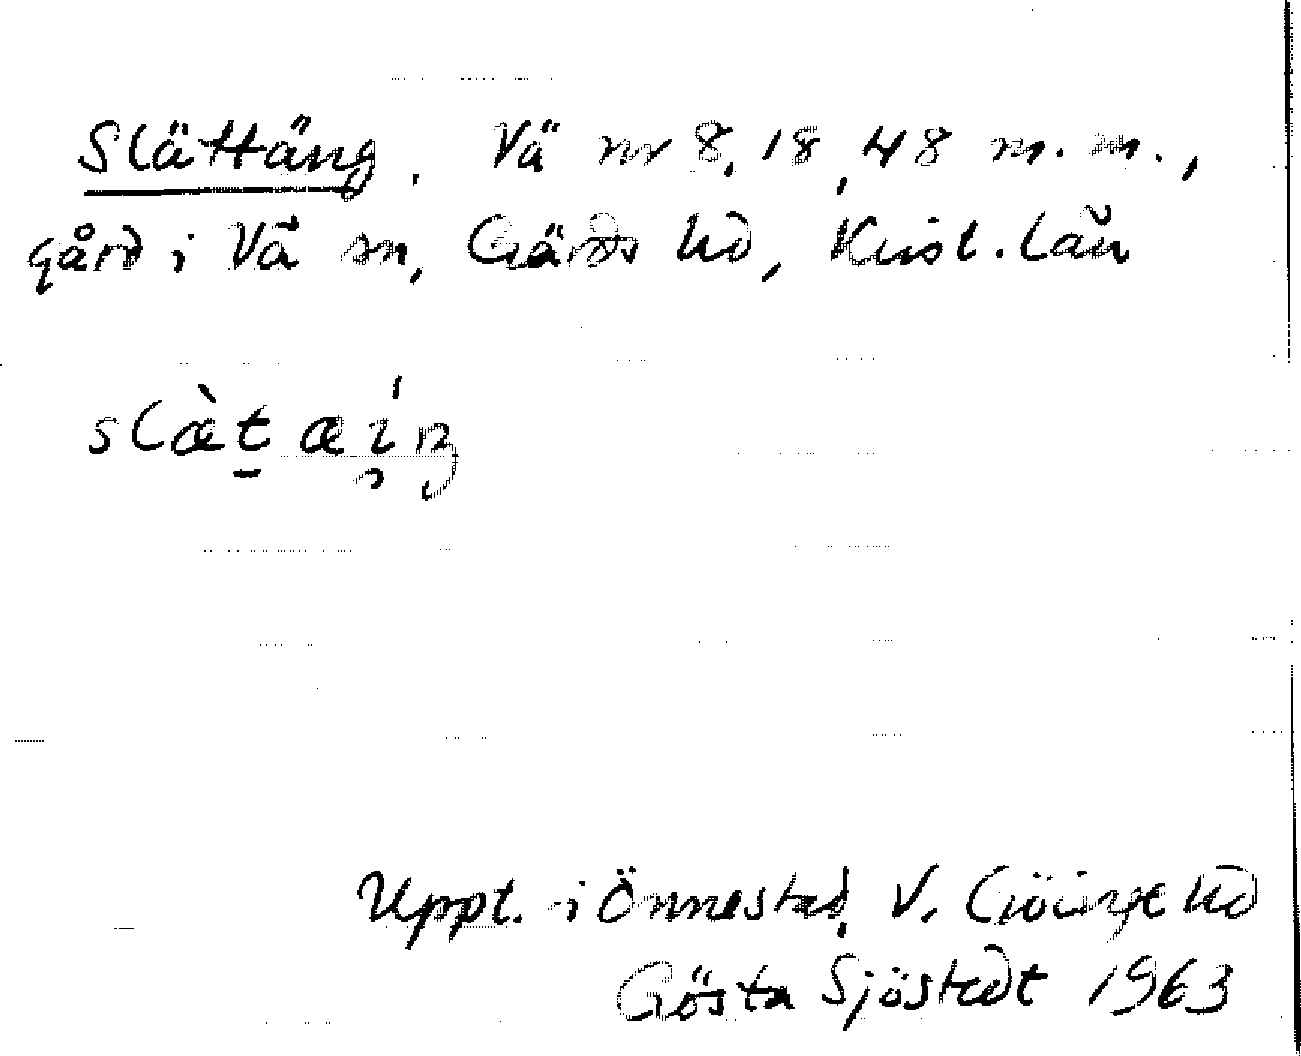 Slättäng. Vä nr 8, 18, 48 m.m.,
gård i Vä sn, Gärds hd, Krist. län
slæ̀t̠æí̯ŋ
Uppt. i Önnestad, V. Göinge hd
Gösta Sjöstedt 1963